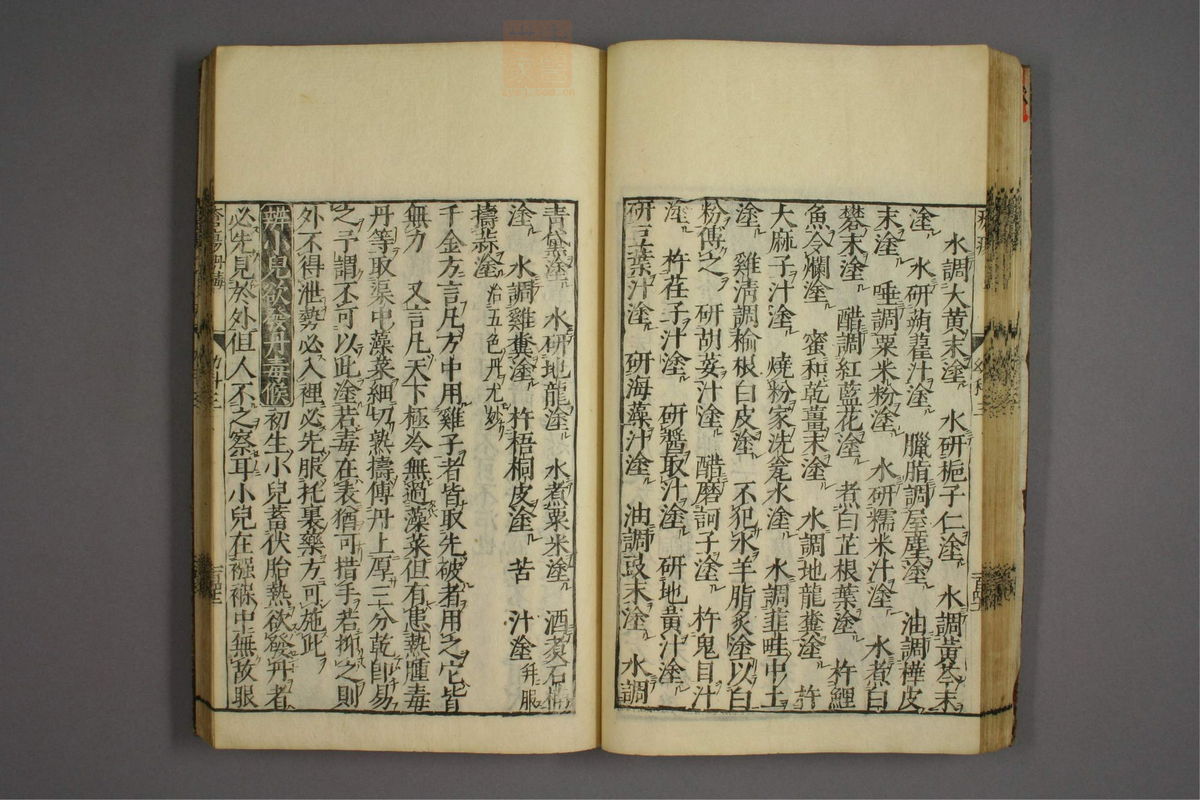 水調大黃末塗　水研梔子仁塗　水調黃芩末
塗　水研蒴藋汁塗　臘脂調屋塵塗　油調樺皮
末塗　唾調粟米粉塗　水研糯米汁塗　水煮白
礬末塗　醋調紅藍花塗　煮白芷根葉塗　杵鯉
魚令爛塗　蜜和乾薑末塗　水調地龍糞塗　杵
大麻子汁塗　燒粉家洗瓮水塗　水調韮畦中土
塗　雞清調榆根白皮塗　不犯水羊脂炙塗以白
粉傅之　研胡荽汁塗　醋磨訶子塗　杵鬼目汁
塗　杵荏子汁塗　研醬取汁塗　研地黃汁塗
研豆葉汁塗　研海藻汁塗　油調豉末塗　水調
青黛塗　水研地龍塗　水煮粟米塗　酒煮石
塗　水調雞糞塗　杵梧桐皮塗　苦　汁塗并服
擣蒜塗治五色丹尤妙
千金方言凡方中用雞子者皆取先破者用之它皆
無方　又言凡天下極冷無過藻菜但有患熱腫毒
丹等取渠中藻菜細切熟擣傅丹上厚三分乾即易
之予謂不可以此塗若毒在表猶可措手若抑之則
外不得泄勢必入裡必先服托裏藥方可施此
辨小兒欲發丹毒候初生小兒蓄伏胎熱欲發丹者
必先見於外但人不之察耳小兒在襁褓中無故眼